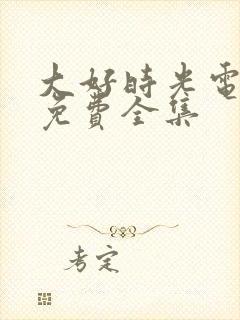 大好時光電
免費全集
考定